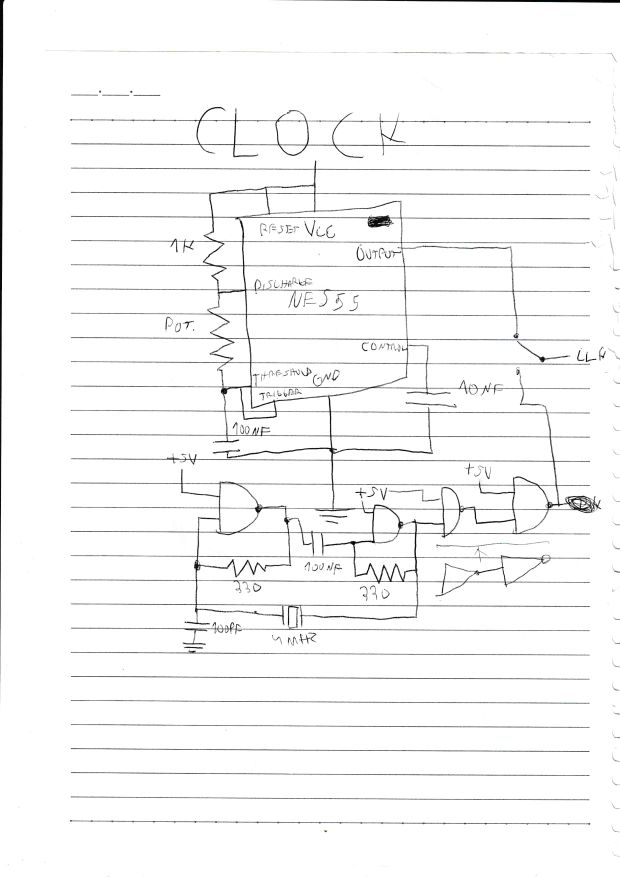 CLOCK
RESET VCC
1K
OUTPUT
DISCHARGE
NE555
POT.
CONTROL
THRESHOLD GND
TRIGGER
10NF
100NF
+5V
+5V
+5V
100NF
330
330
100PF
4MHZ